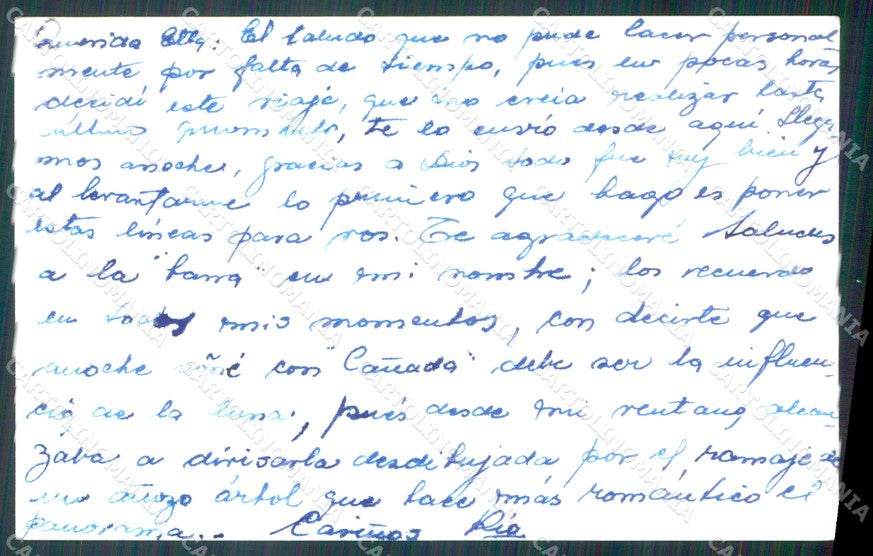 Querida Elly: El saludo que no pude hacer personal
mente por falta de tiempo, pues en pocas horas
decidí este viaje, que no creia realizar hasta
último momento, te lo envio desde aquí. Llega
mos anoche, gracias a Dios todo fue muy bien y
al levantarme lo primero que hago es poner
estas líneas para vos. Te agradeceré saludes
a la "barra" en mi nombre; los recuerdo
en todos mis momentos, con decirte que
anoche soñé con "Cañada" debe ser la influen-
cia de la luna, pués desde mi ventana alcan
zaba a divisarla desdibujada por el ramaje de
un añozo árbol que hace más romántico el
panorama.. Cariños
CARTOLINOMANIA